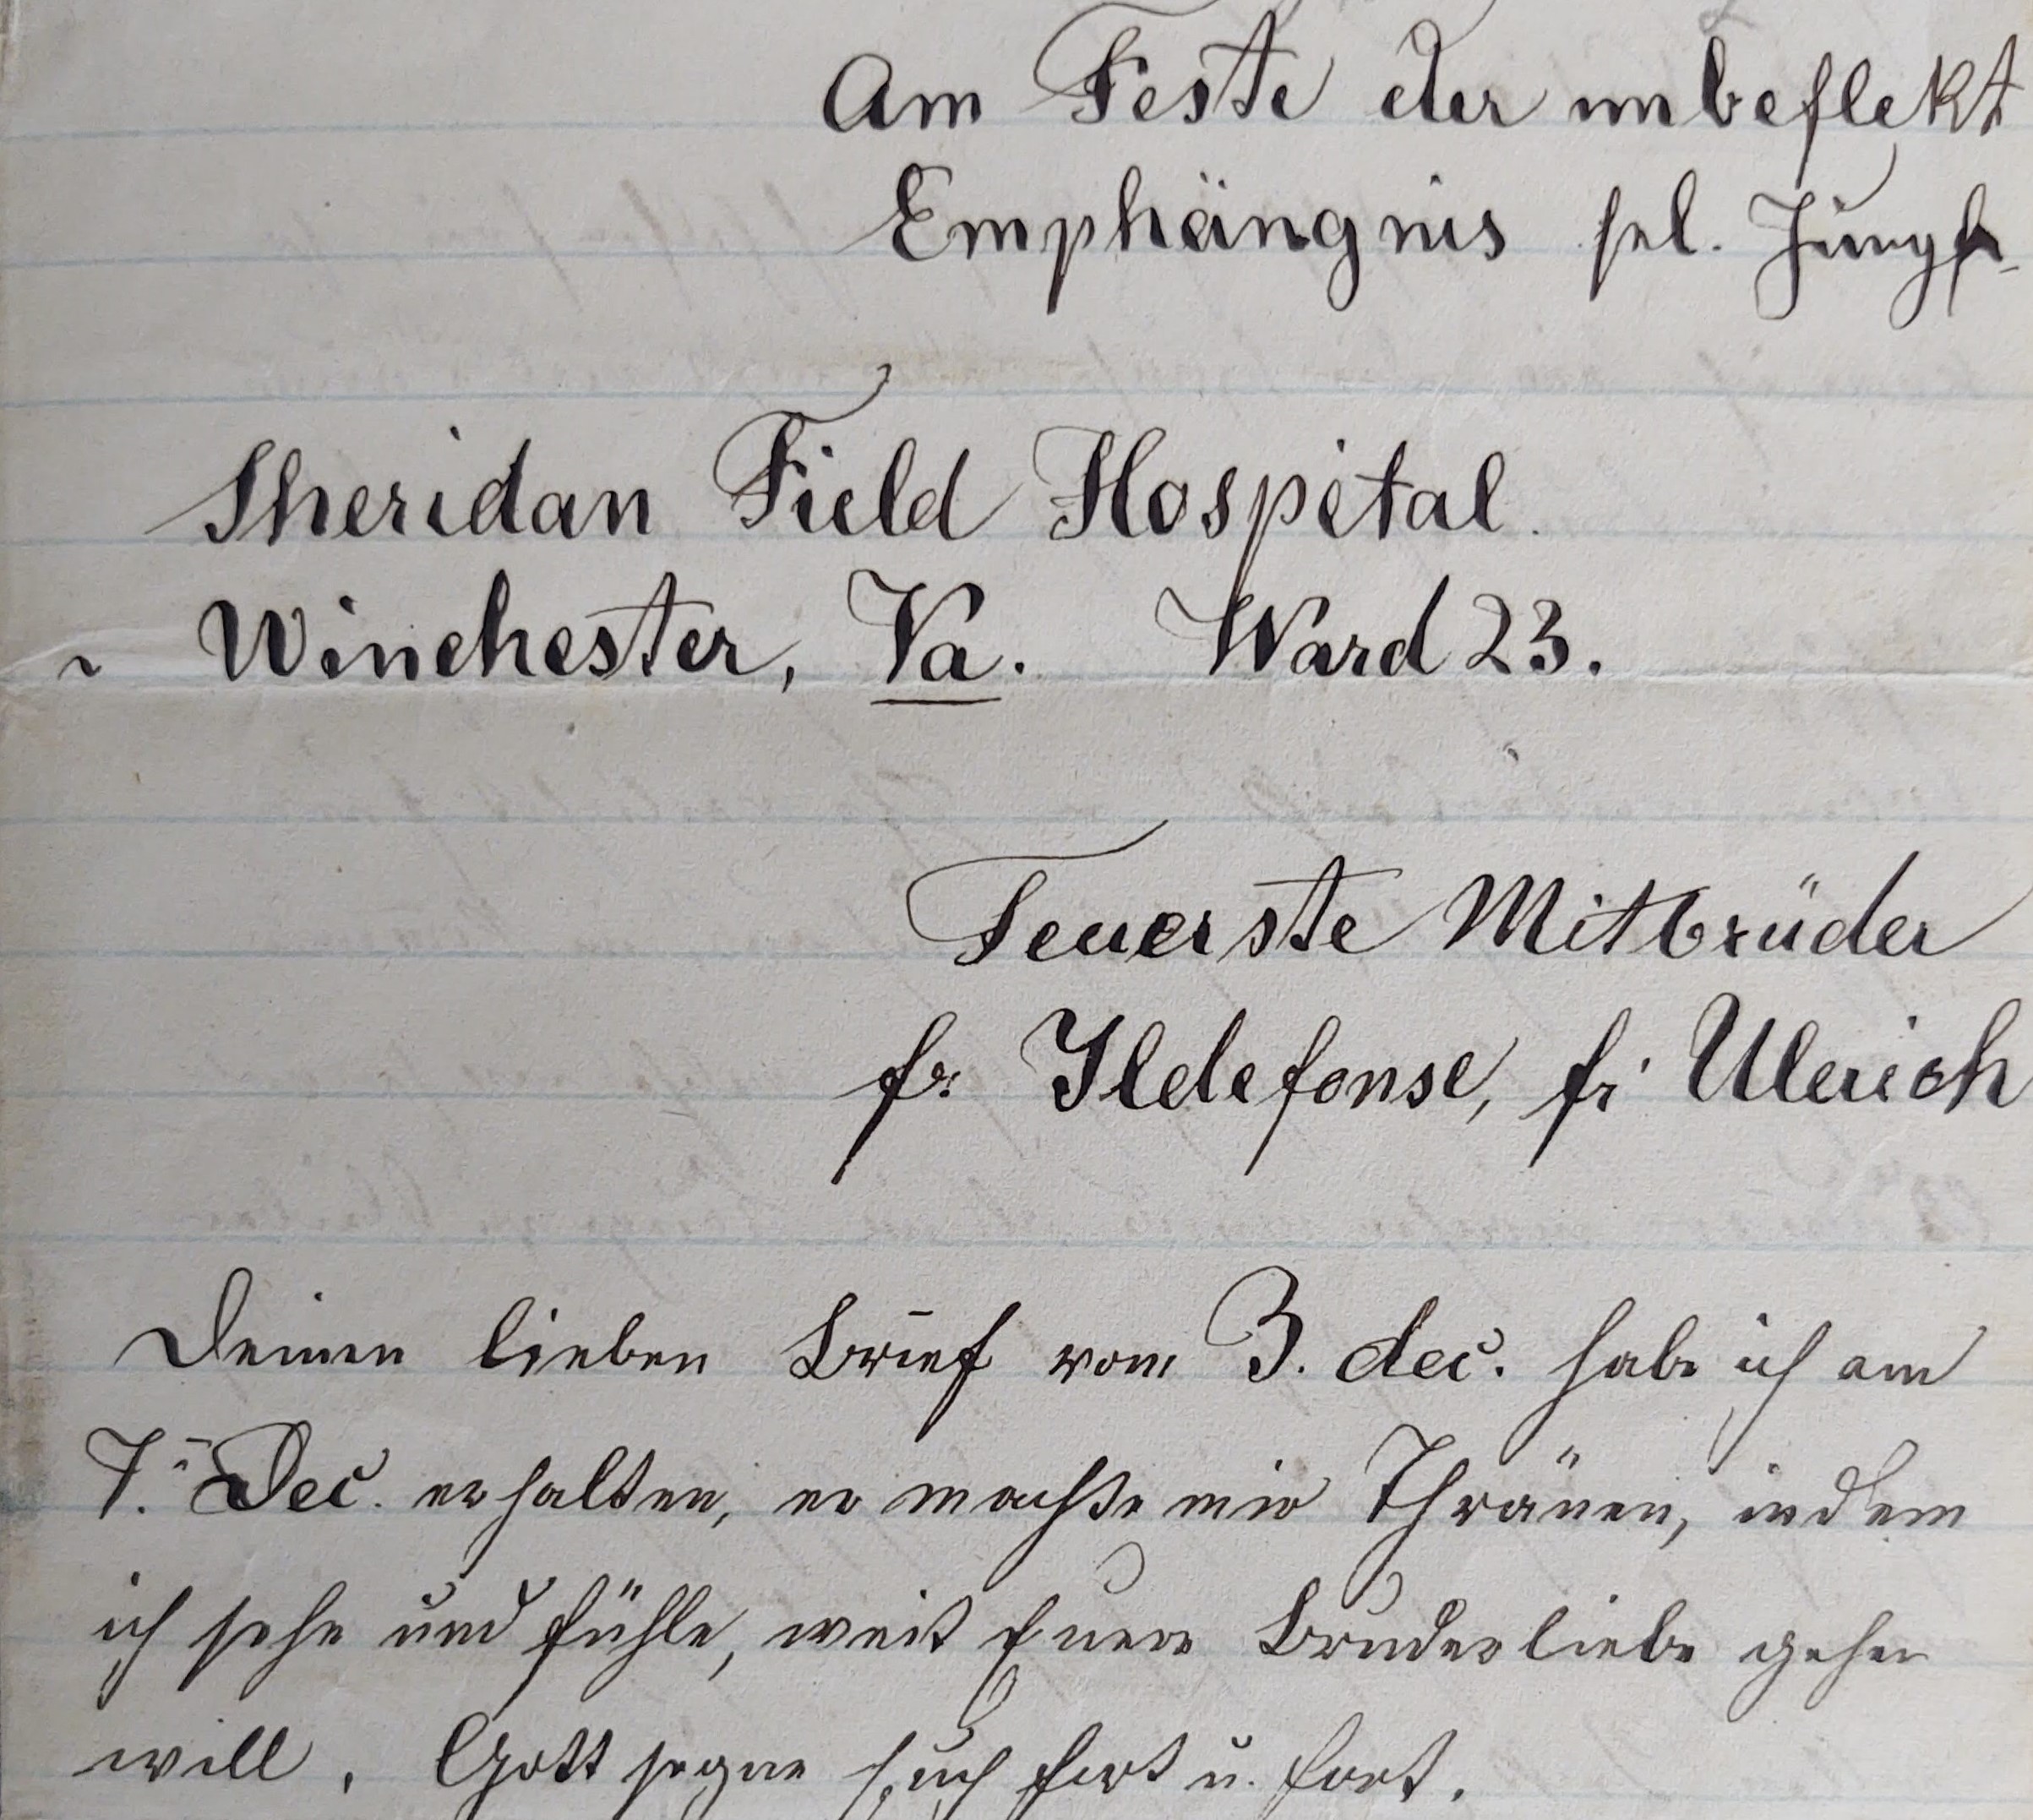 Am Feste der unbeflekt
Emphängnis sel. Jungfr.
Sheridan Field Hospital.
Winchester, Va. Ward 23.
Teuerste Mitbrüder
fr. Ildefonse, fr. Ulerich
Deinen lieben Brief vom 3. dec. habe ich am
7. Dec. erhalten, er machte mir Thränen, indem
ich sehe und fühle, weit Euere Bruderliebe gehen
will. Gott segne Euch fort u. fort.